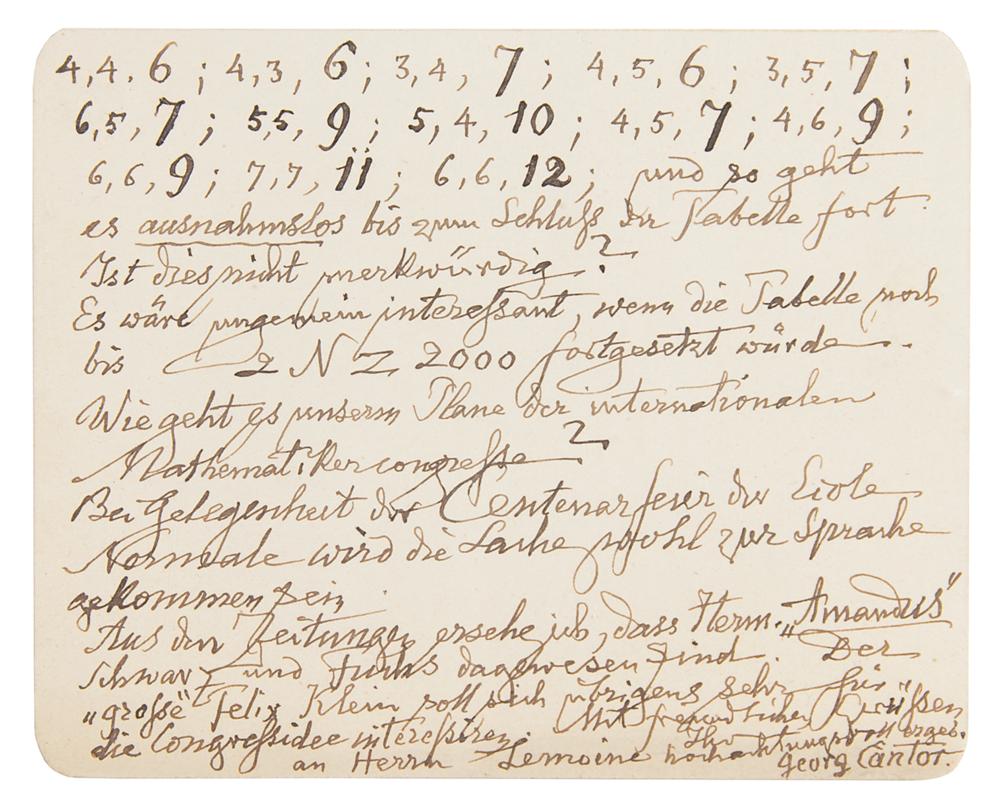 4,4, 6 ; 4,3, 6 ; 3,4, 7 ; 4,5, 6 ; 3,5, 7 ;
6,5, 7 ; 5,5, 9 ; 5,4, 10 ; 4,5, 7 ; 4,6, 9 ;
6,6, 9 ; 7,7, 11 ; 6,6, 12 ; und so geht
es ausnahmslos bis zum Schluß der Tabelle fort.
Ist dies nicht merkwürdig?
Es wäre ungemein interessant, wenn die Tabelle noch
bis 2 N = 2000 fortgesetzt würde.
Wie geht es unserm Plane der internationalen
Mathematikercongresse?
Bei Gelegenheit der Centenarfeier der Ecole
Normale wird die Sache wohl zur Sprache
gekommen sein.
Aus den Zeitungen ersehe ich, dass Herm. „Amandus“
Schwarz und Fuchs dagewesen sind. Der
„große“ Felix Klein soll sich übrigens sehr für
die Congreßidee interessiren. Mit freundlichen Grüßen
Ihr
an Herrn Lemoine hochachtungsvoll ergeb.
Georg Cantor.